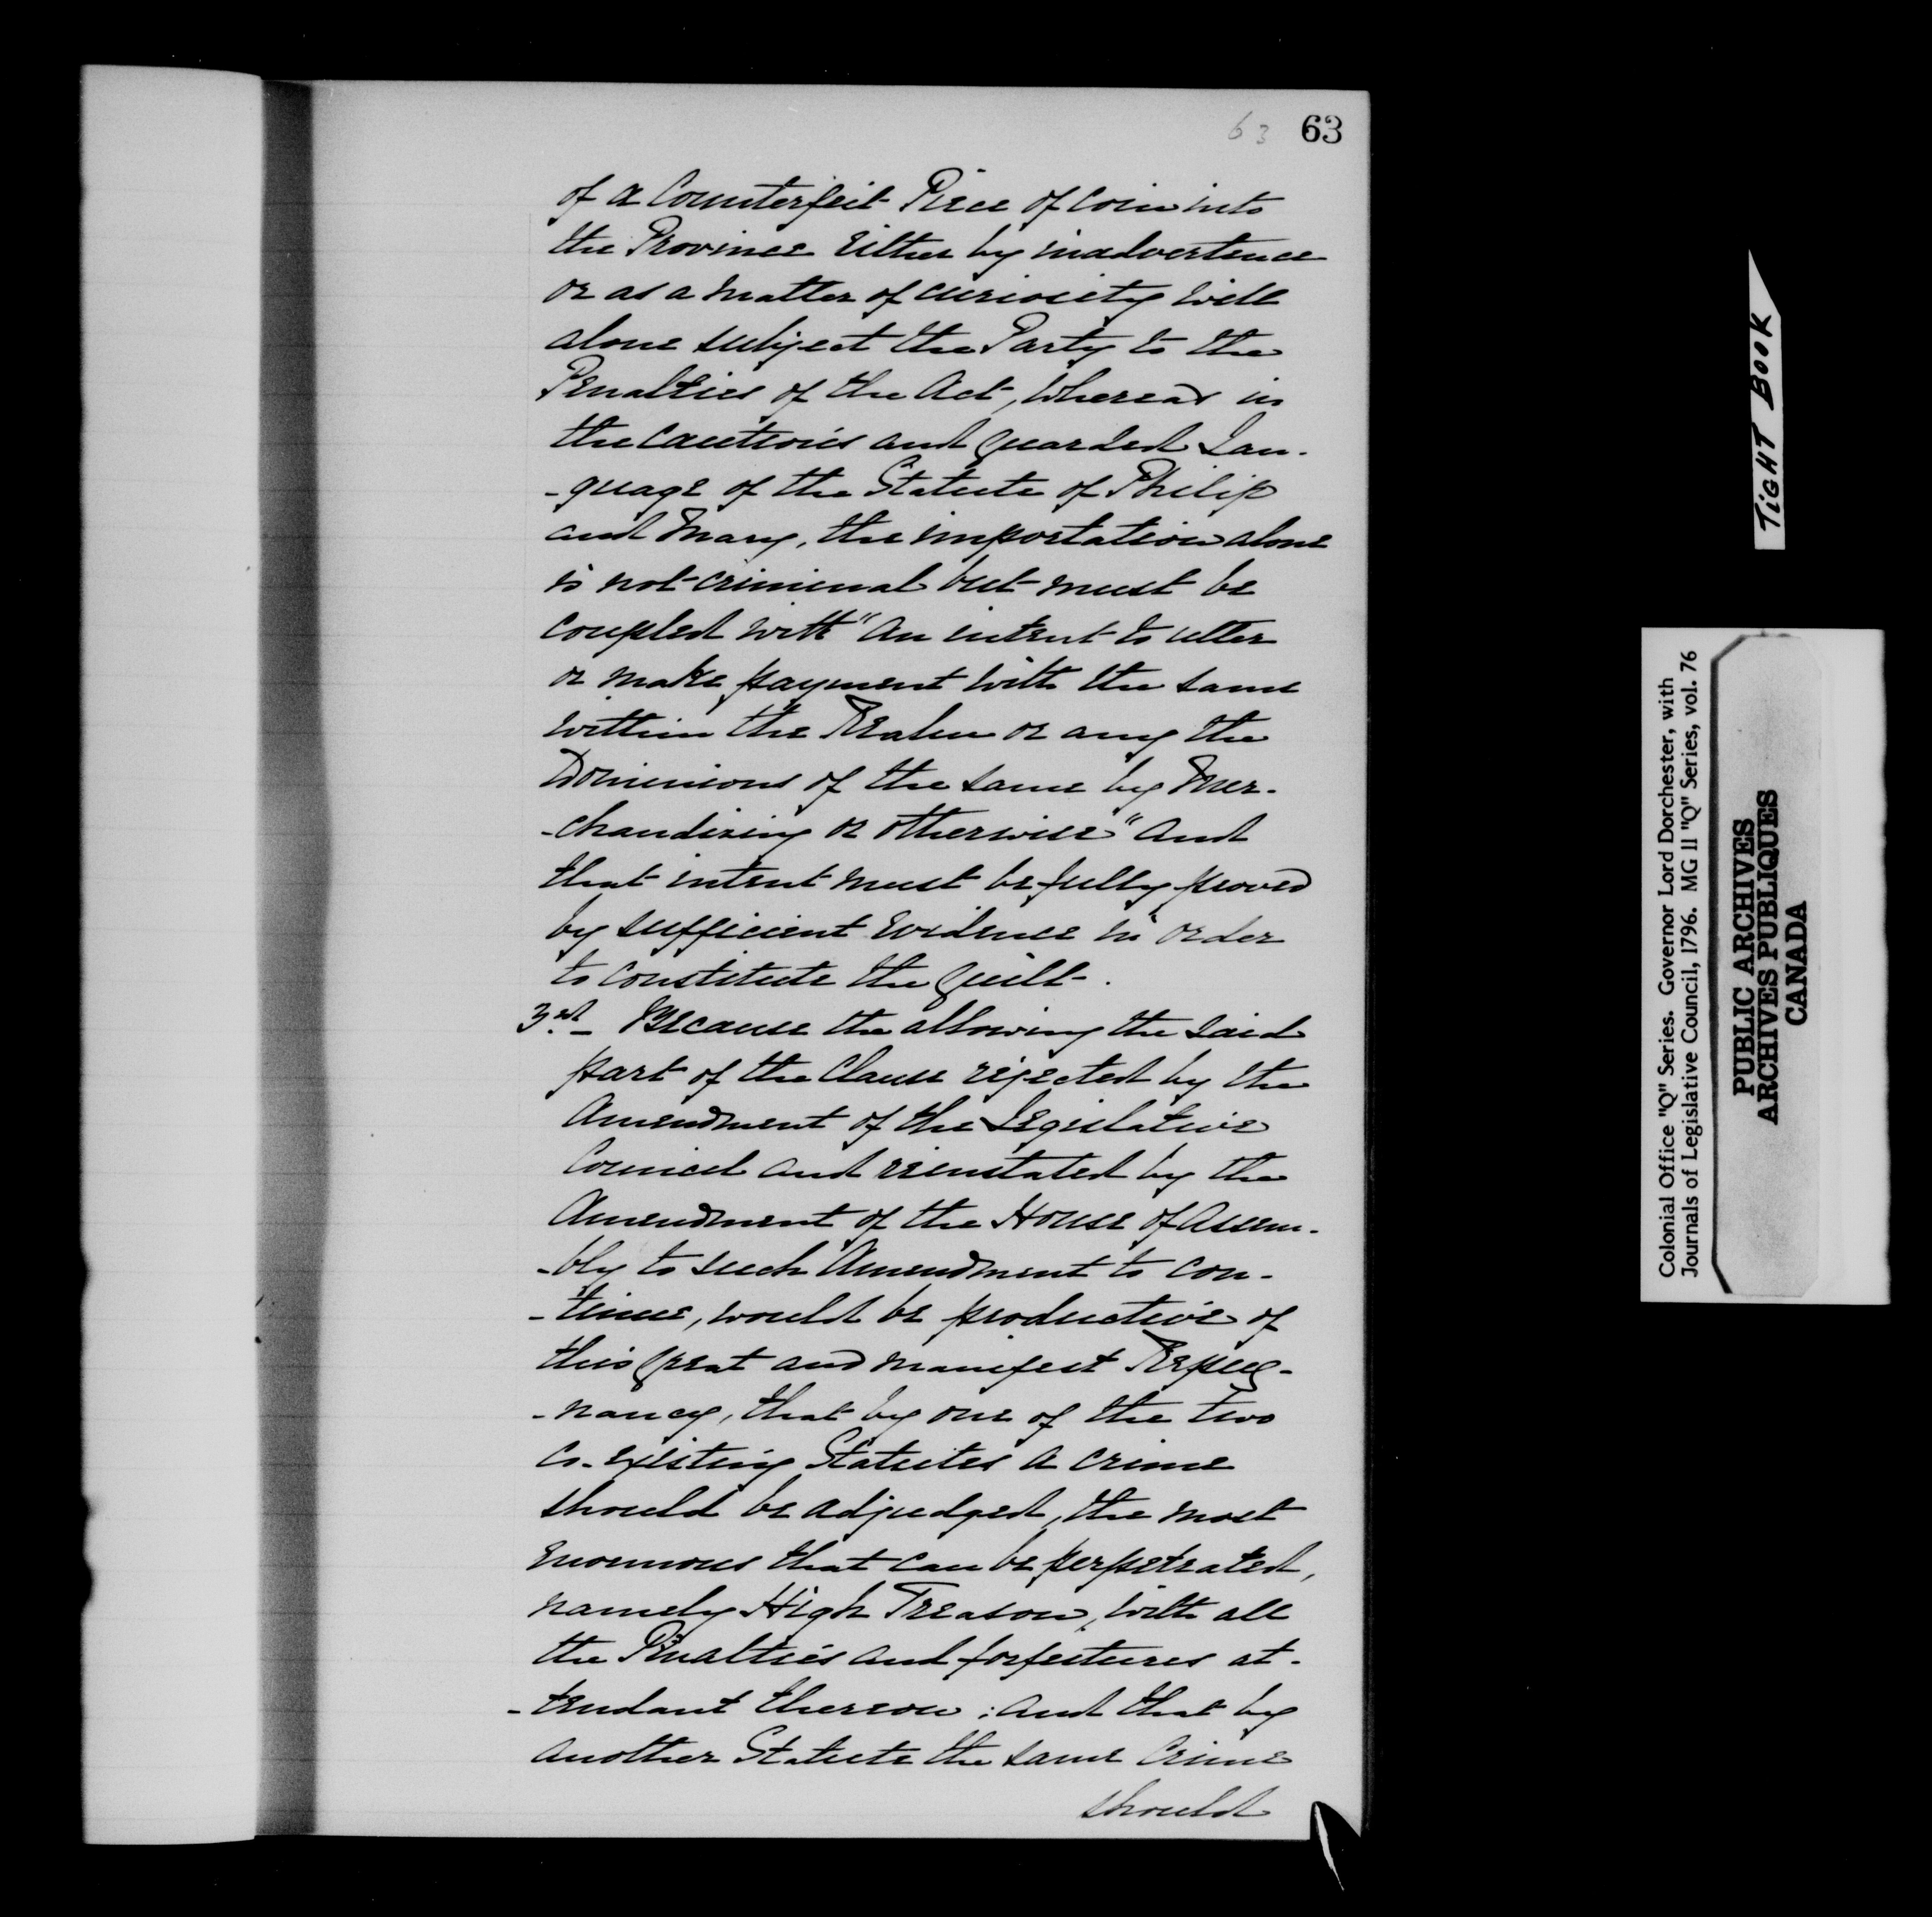 63 63
of a Counterfeit Piece of Coin into
the Province Either by inadvertence
or as a matter of curiosity will
alone subject the Party to the
Penalties of the Act, whereas in
the Cautious and guarded Lan-
-guage of the Statute of Philip
and Mary, the importation alone
is not criminal but must be
coupled with "An intent to utter
or make payment with the same
within the Realm or any the
Dominions of the same by Mer-
-chandizing or otherwise" and
that intent must be fully proved
by sufficient Evidence in order
to constitute the guilt.
3rd_ Because the allowing the said
part of the Clause rejected by the
Amendment of the Legislative
Council and reinstated by the
Amendment of the House of Assem-
-bly to such Amendment to con-
-tinue, would be productive of
this great and manifest Repug-
-nancy, that by one of the two
co-existing Statutes a crime
should be adjudged, the most
Enormous that can be perpetrated,
namely High Treason, with all
the Penalties and forfeitures at-
-tendant thereon; and that by
another Statute the same Crime
should
TIGHT BOOK
Colonial Office "Q" Series. Governor Lord Dorchester, with
Journals of Legislative Council, 1796. MG 11 "Q" Series, vol. 76
PUBLIC ARCHIVES
ARCHIVES PUBLIQUES
CANADA